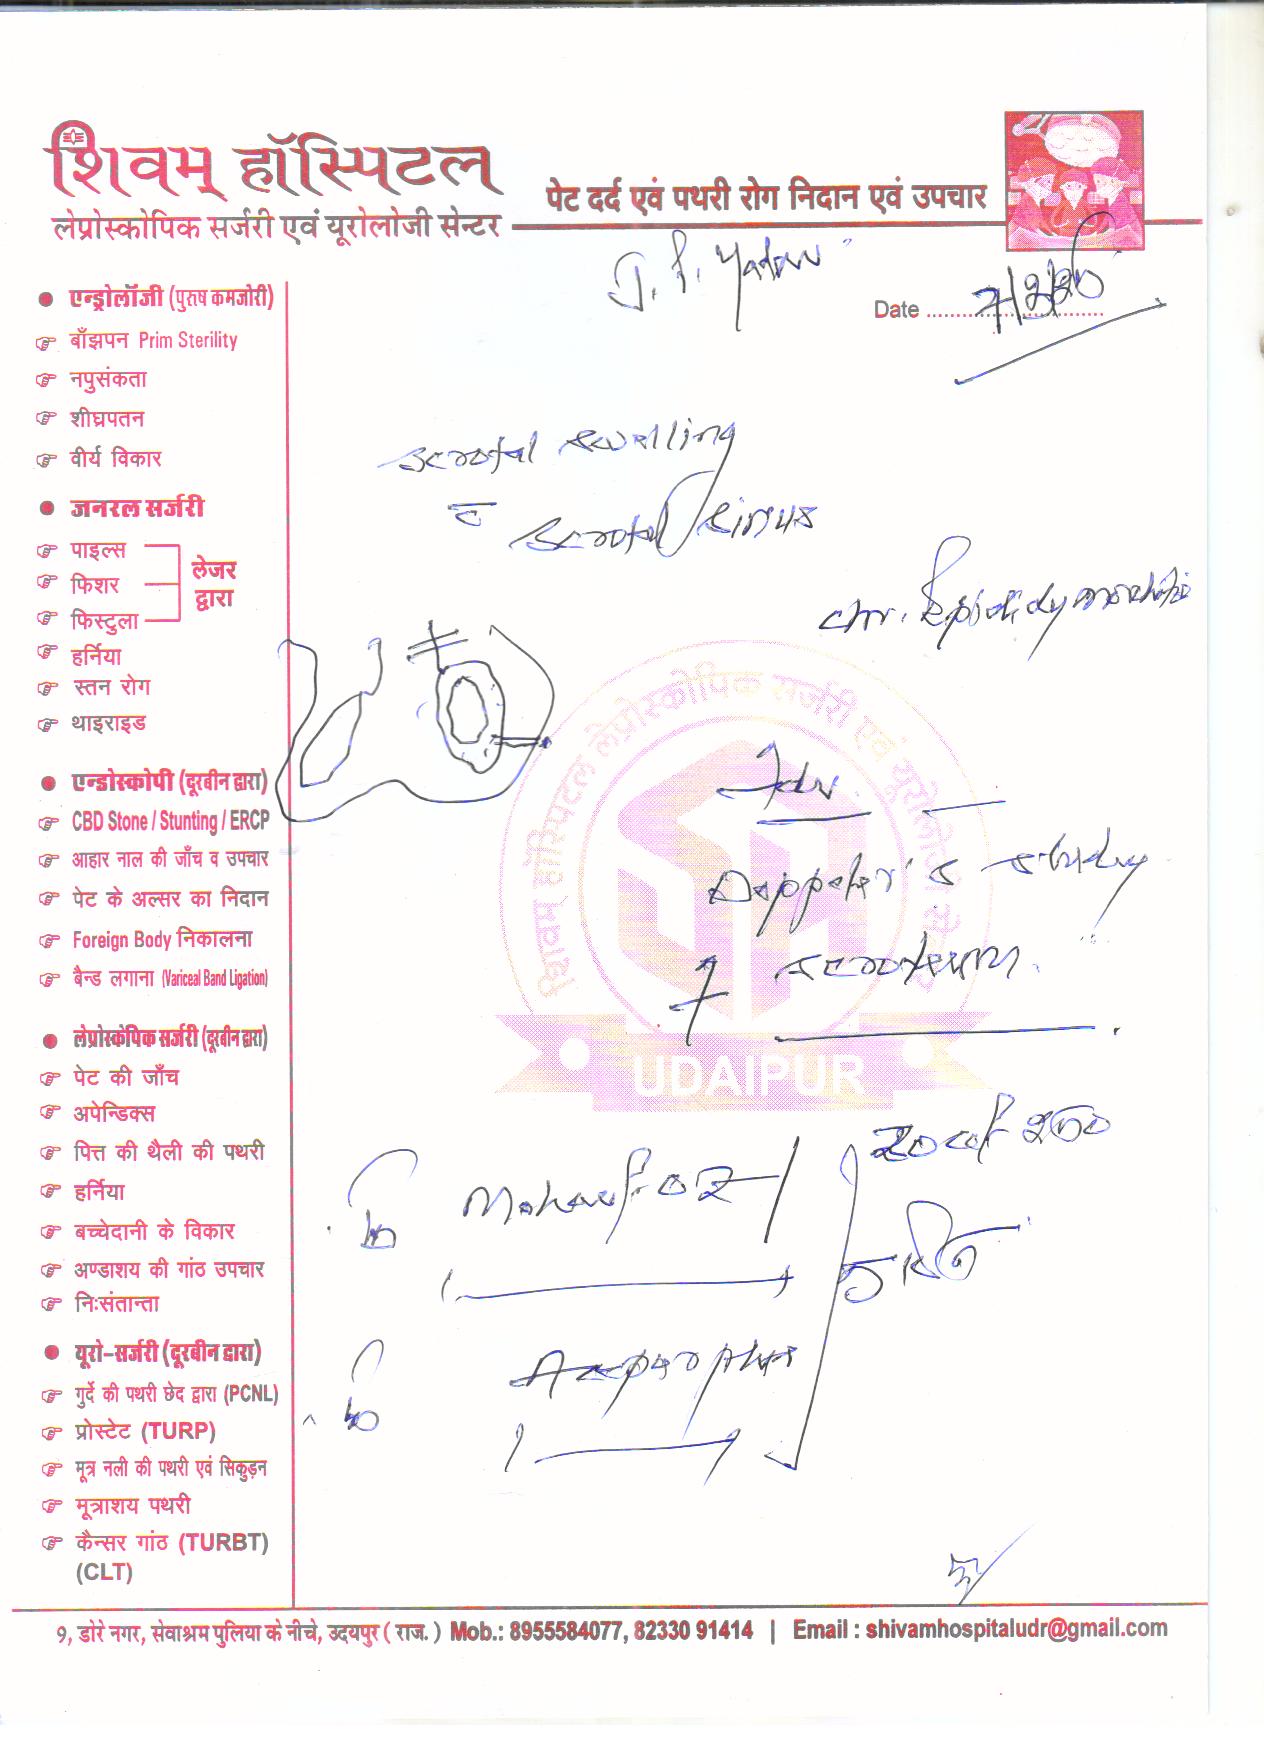 शिवम् हॉस्पिटल
लेप्रोस्कोपिक सर्जरी एवं यूरोलोजी सेन्टर
पेट दर्द एवं पथरी रोग निदान एवं उपचार
Yadav
Date
एन्ड्रोलॉजी (पुरुष कमजोरी)
बाँझपन Prim Sterility
नपुसंकता
शीघ्रपतन
वीर्य विकार
जनरल सर्जरी
पाइल्स
फिशर
फिस्टुला
लेजर
द्वारा
हर्निया
स्तन रोग
थाइराइड
एन्डोस्कोपी (दूरबीन द्वारा)
CBD Stone / Stunting / ERCP
आहार नाल की जाँच व उपचार
पेट के अल्सर का निदान
Foreign Body निकालना
बैन्ड लगाना (Variceal Band Ligation)
लेप्रोस्कोपिक सर्जरी (दूरबीन द्वारा)
पेट की जाँच
अपेन्डिक्स
पित्त की थैली की पथरी
हर्निया
बच्चेदानी के विकार
अण्डाशय की गांठ उपचार
निःसंतान्ता
यूरो-सर्जरी (दूरबीन द्वारा)
गुर्दे की पथरी छेद द्वारा (PCNL)
प्रोस्टेट (TURP)
मूत्र नली की पथरी एवं सिकुड़न
मूत्राशय पथरी
कैन्सर गांठ (TURBT)
(CLT)
scrotal swelling
scrotal sinus
chr.
Adv
study
scrotum
UDAIPUR
250
9, डोरे नगर, सेवाश्रम पुलिया के नीचे, उदयपुर ( राज. ) Mob.: 8955584077, 82330 91414 | Email : shivamhospitaludr@gmail.com